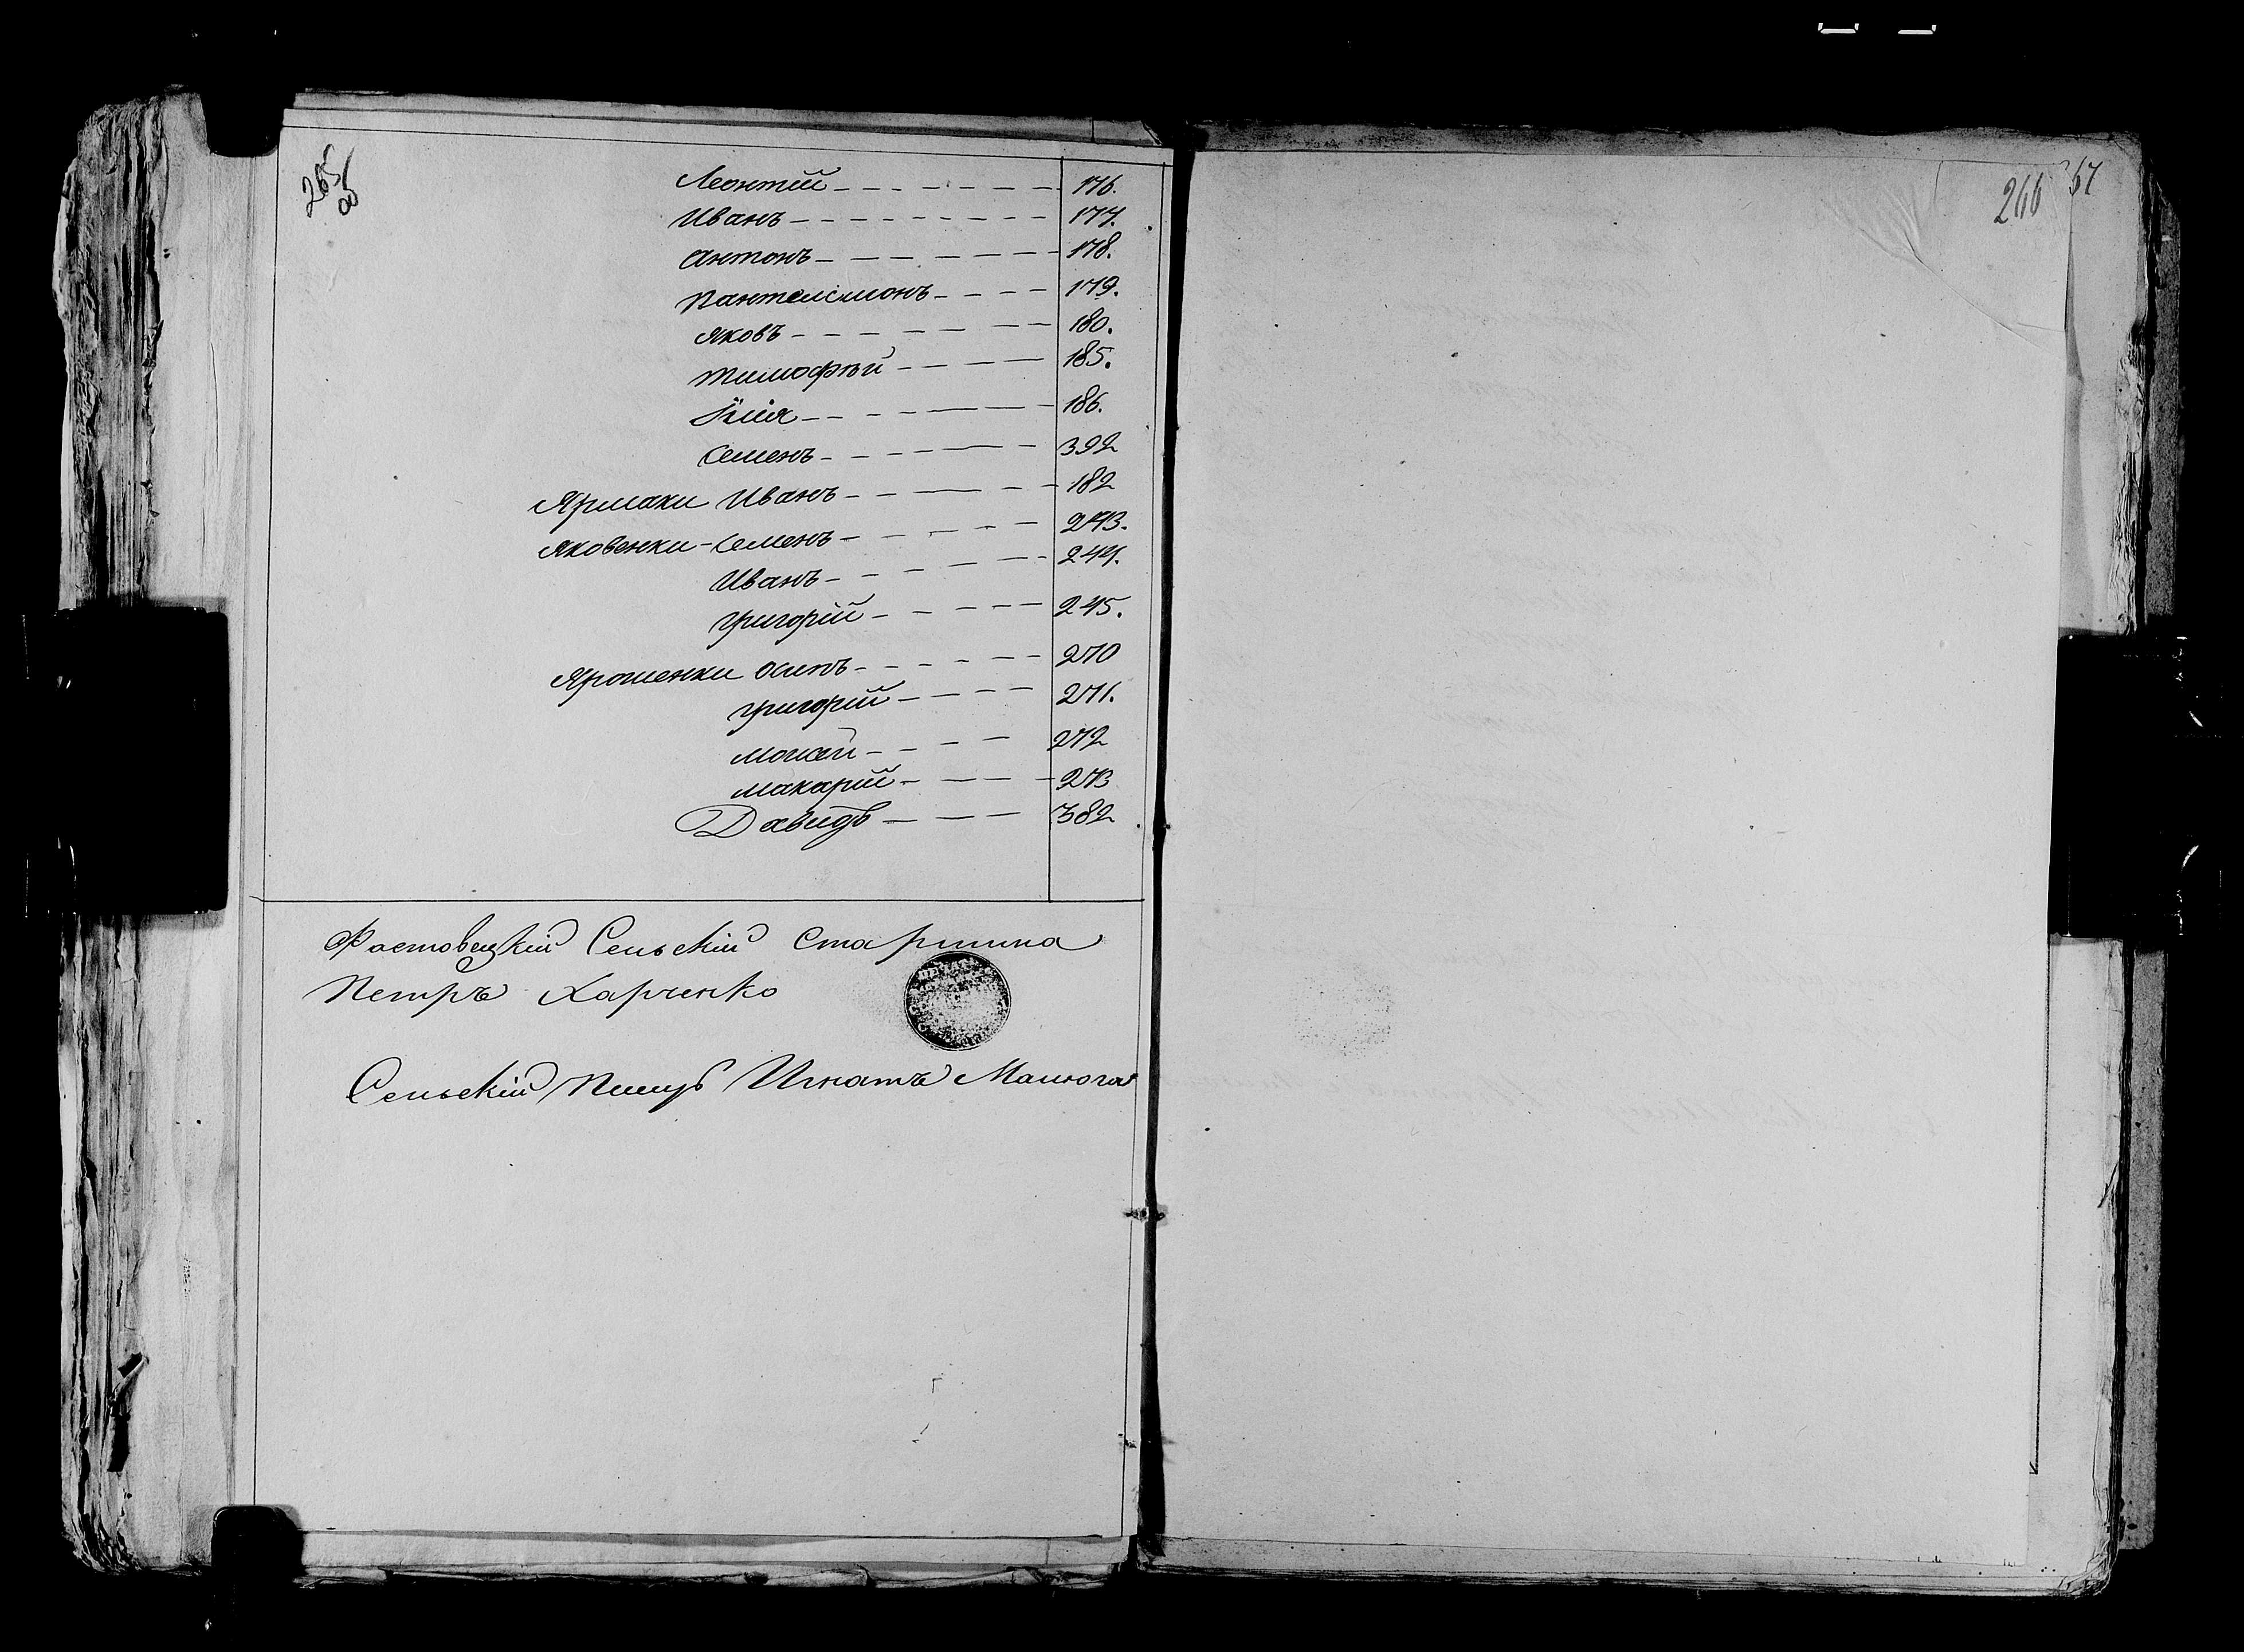 265
об
Леонтій - - - - - - - 176.
Иванъ - - - - - - - - 177.
Антонъ - - - - - - - 178.
Пантелеимонъ - - - - 179.
Яковъ - - - - - - - 180.
Тимофѣй - - - - 185.
Илія - - - - - - - 186.
Семенъ - - - - - - 392
Ярмаки Иванъ - - - - - 182
Яковенки - Семенъ - - - - - - 243.
Иванъ - - - - - - 244.
Григорій - - - - - 245.
Ярошенки Осипъ - - - - - - 270
Григорій - - - - 271.
Мойсей - - - - 272
Макарій - - - - 273
Давидъ - - - - 382
Фастовецкій Сельскій Старшина
Петръ Харченко
Сельскій Писарь Игнатъ Малюга
266
67